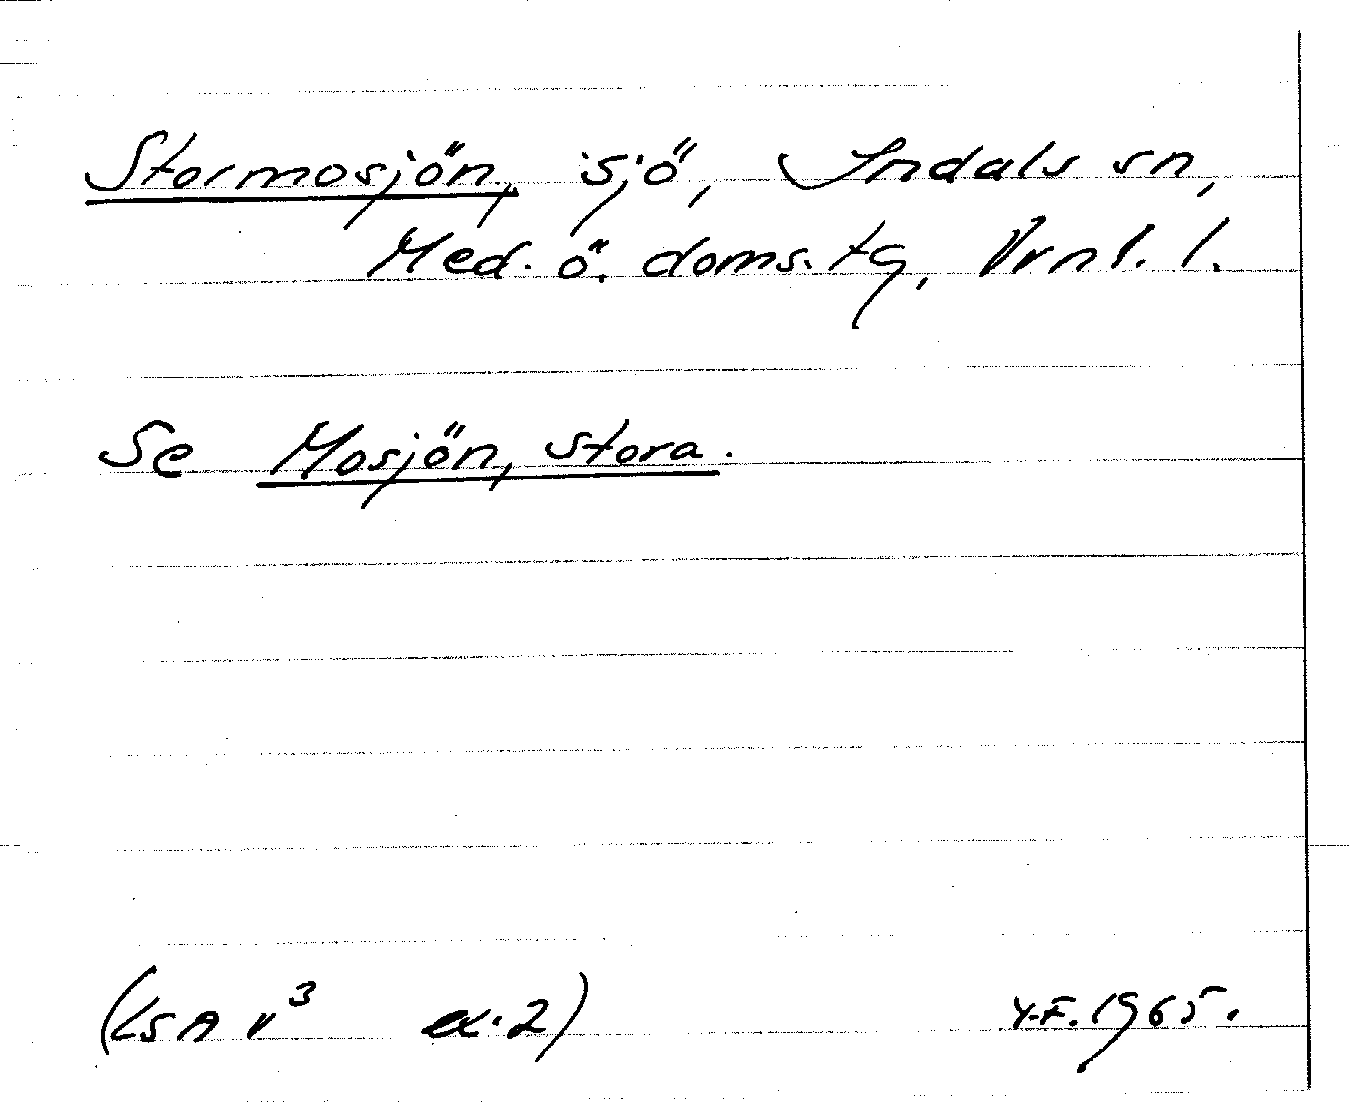 Stormosjön, sjö, Indals sn,
Med. ö. doms. tg, Vrnl. l.
Se Mosjön, Stora.
(LSA ex. 2) Y.F. 1965.